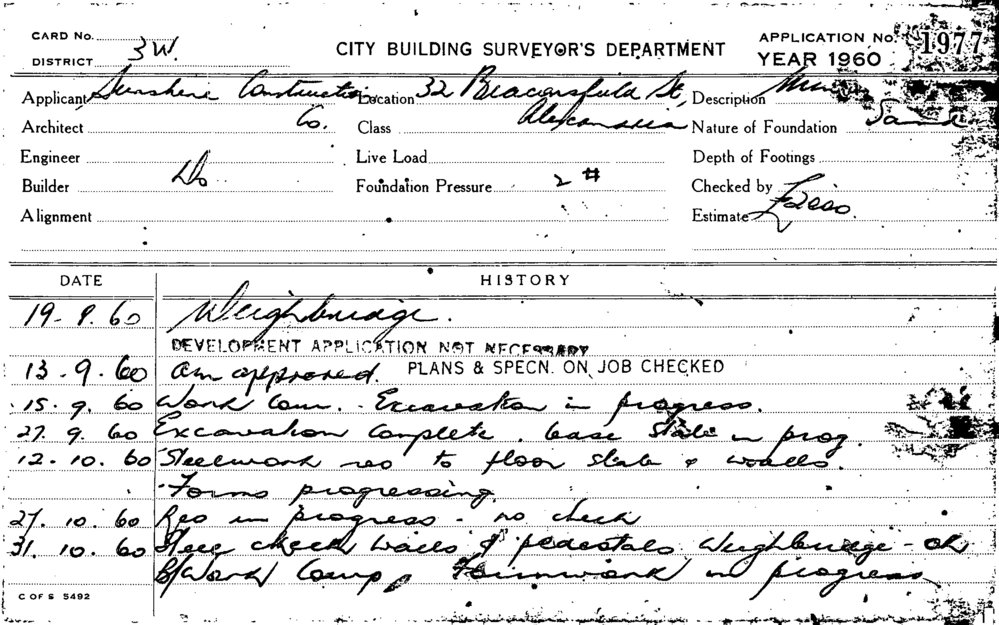 CARD No.
DISTRICT 3W.
CITY BUILDING SURVEYOR'S DEPARTMENT
APPLICATION No. 1977
YEAR 1960
Applicant Sunshine Construction Co.
Location 32 Beaconsfield St, Alexandria
Description
Architect
Class
Nature of Foundation Sand
Engineer
Live Load
Depth of Footings
Builder Do
Foundation Pressure 2 #
Checked by
Alignment
Estimate
DATE HISTORY
19-8.60 Weighbridge.
DEVELOPMENT APPLICATION NOT NECESSARY
13.9.60 am approved. PLANS & SPECN. ON JOB CHECKED
15.9.60 Work Com. Excavation in progress.
27.9.60 Excavation Complete. base slab in prog.
12.10.60 Steelwork reo to floor slab & walls.
Forms progressing.
27.10.60 Reo in progress - no check
31.10.60 Steel check walls & pedestals Weighbridge - ok
B/Work Comp, Formwork in progress
C OF S 5492